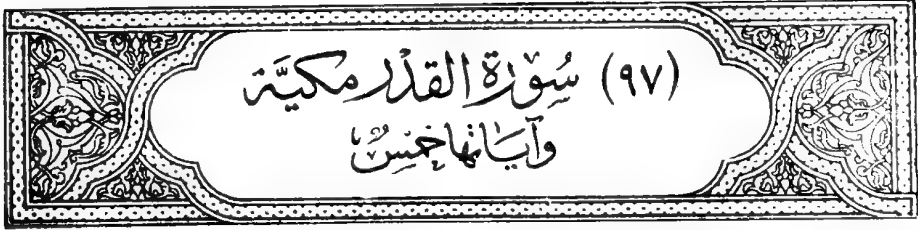 (٩٧) سُورَةُ القَدْرِ مَكِيَّة
وآيَاتُهَا خَمْسٌ